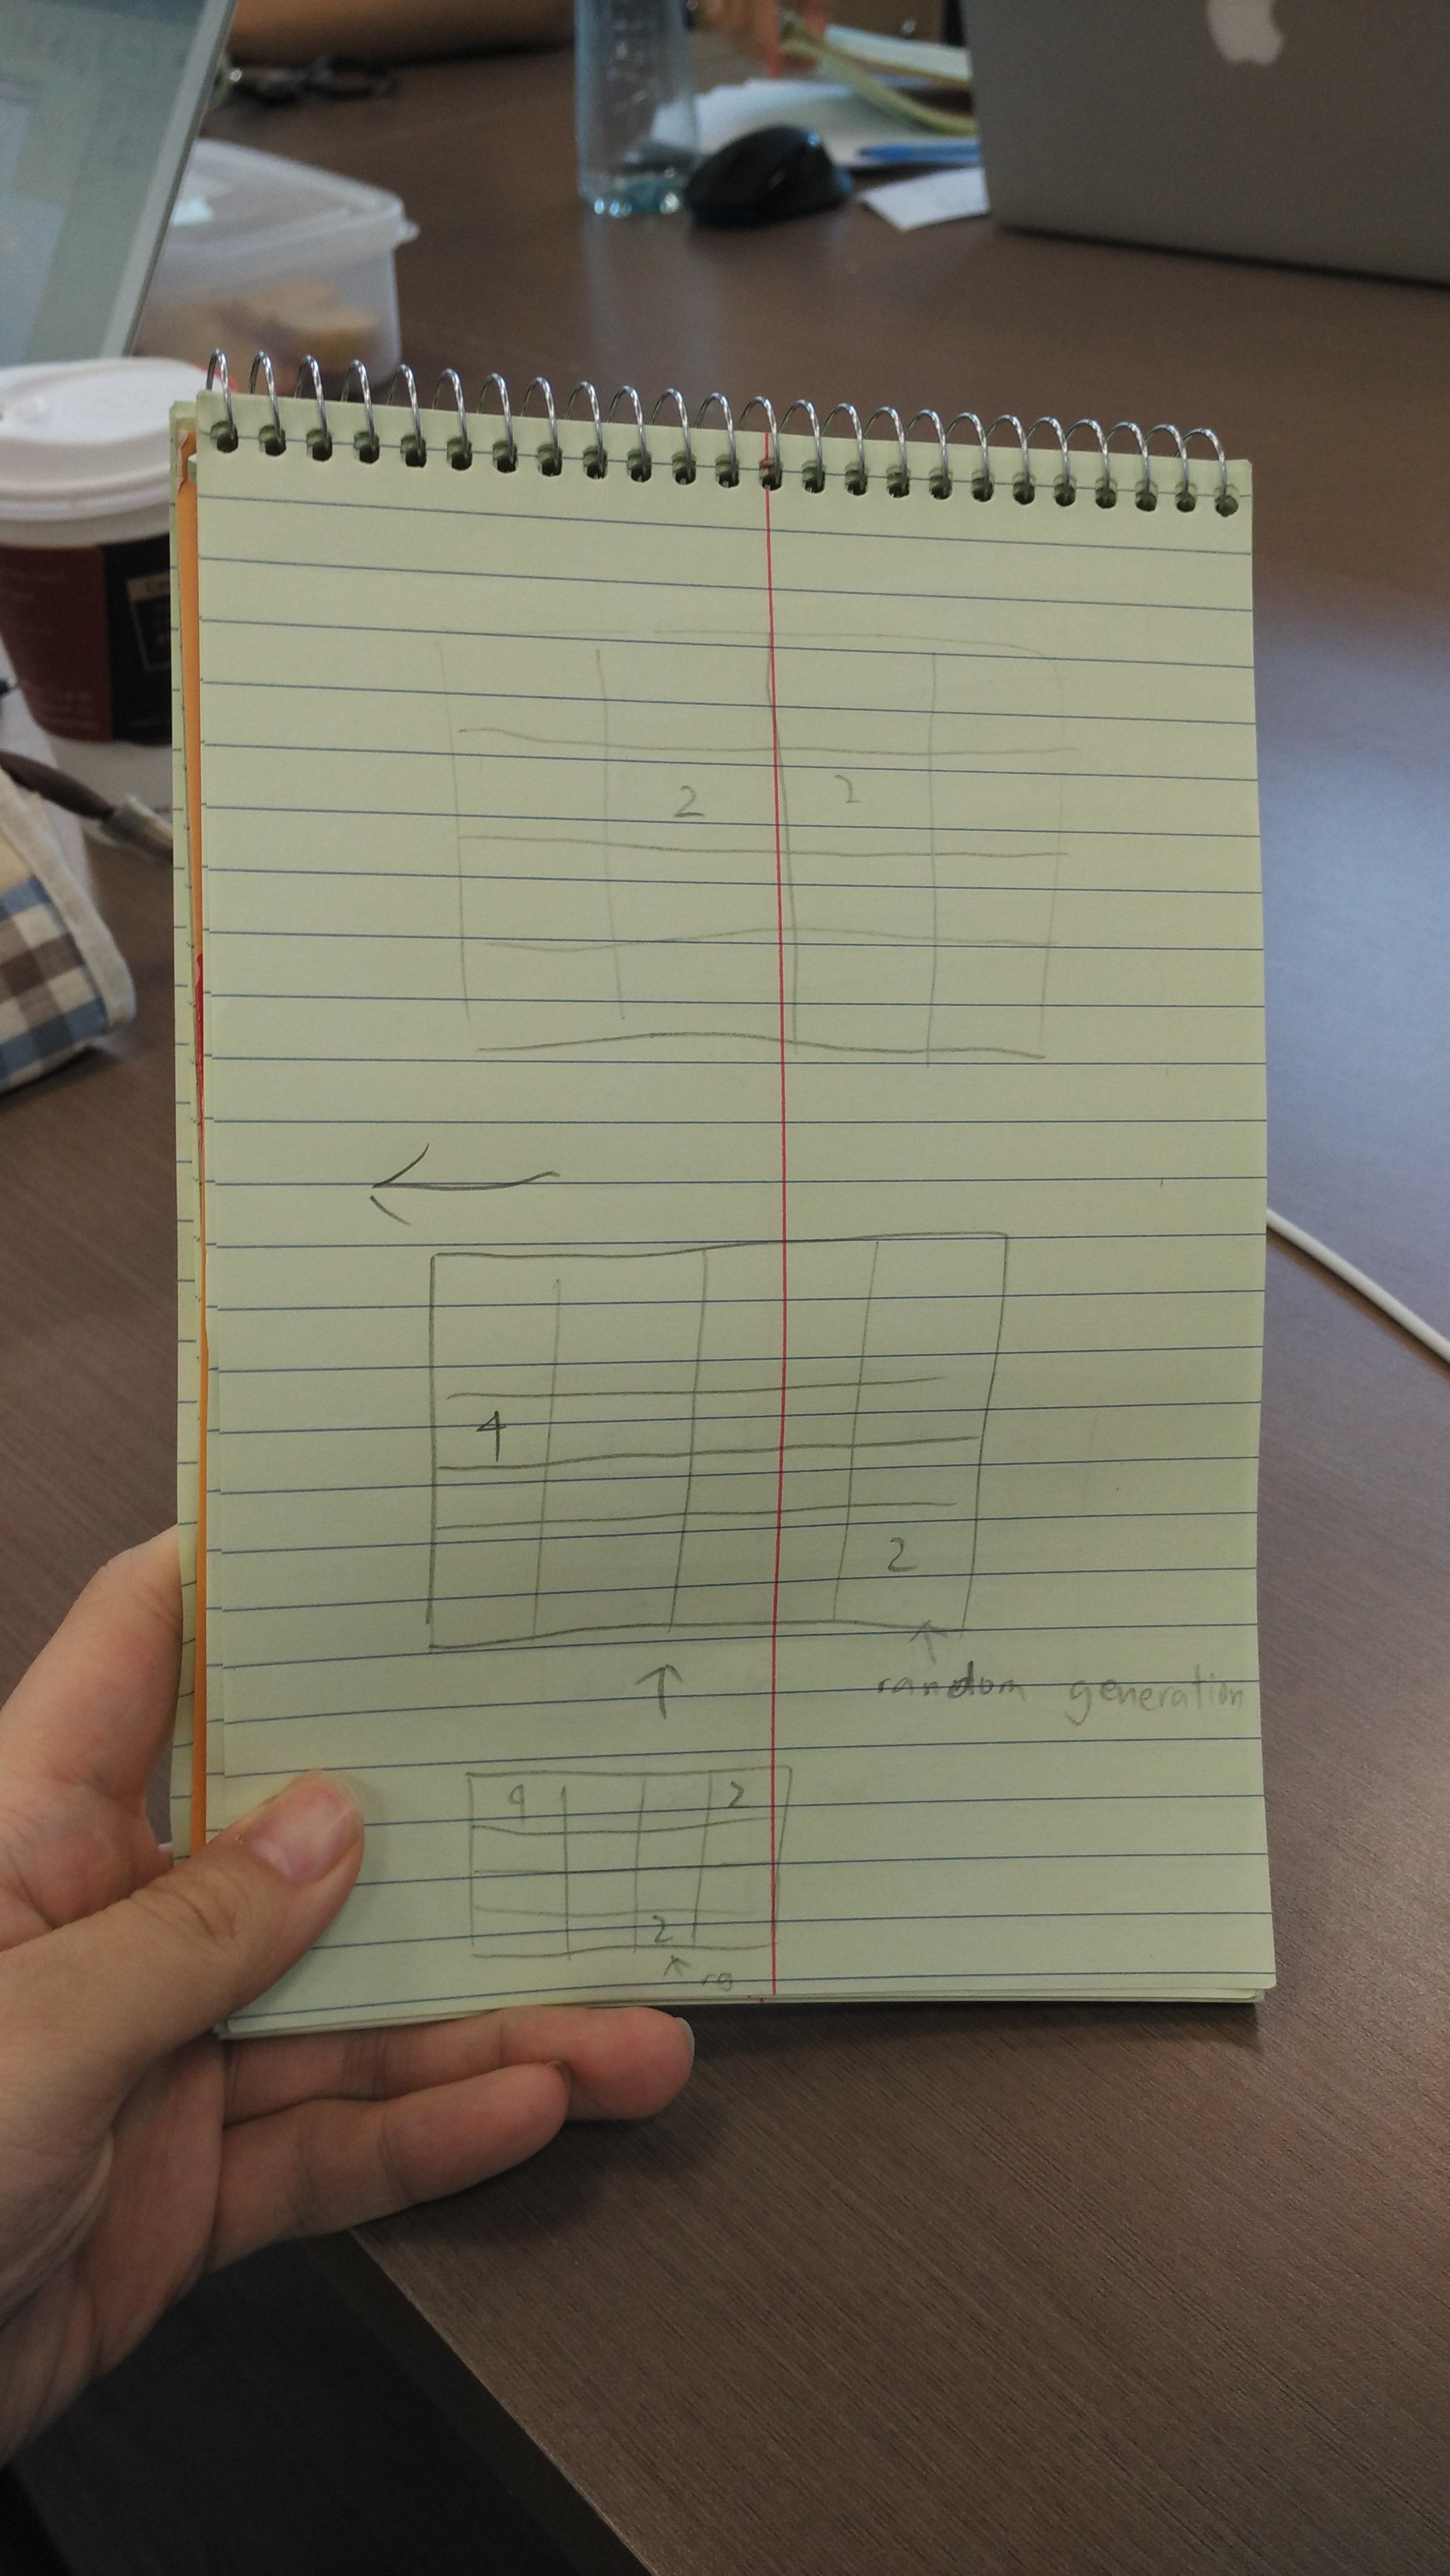 2 2
4
2
random generation
9 2
2
rg